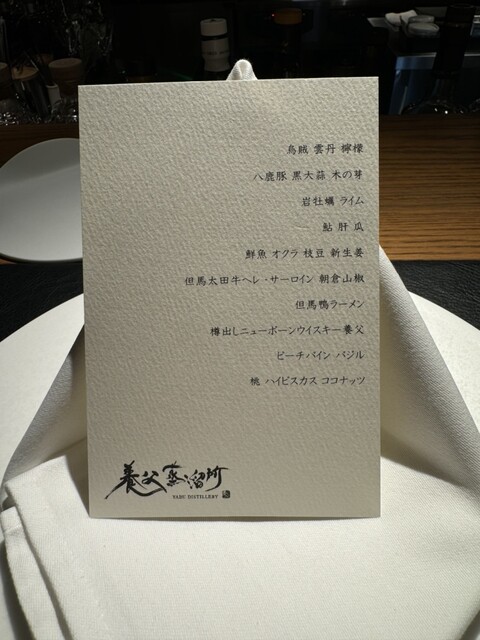 烏賊 雲丹 檸檬
八鹿豚 黒大蒜 木の芽
岩牡蠣 ライム
鮎 肝 瓜
鮮魚 オクラ 枝豆 新生姜
但馬太田牛ヘレ・サーロイン 朝倉山椒
但馬鴨ラーメン
樽出しニューボーンウイスキー養父
ピーチパイン バジル
桃 ハイビスカス ココナッツ
養父蒸溜所
YABU DISTILLERY